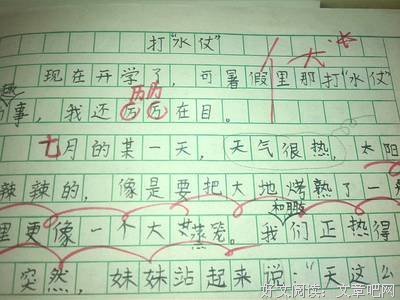 打“水仗”
现在开学了，可暑假里那打“水仗”
趣
历历
的事，我还厉厉在目。
七月的某一天，天气很热，太阳
辣辣的，像是要把大地烤熟了一
里更像一不大蒸笼。我们正热得
突然，妹妹站起来说：“天这么
好文阅读：文章吧网